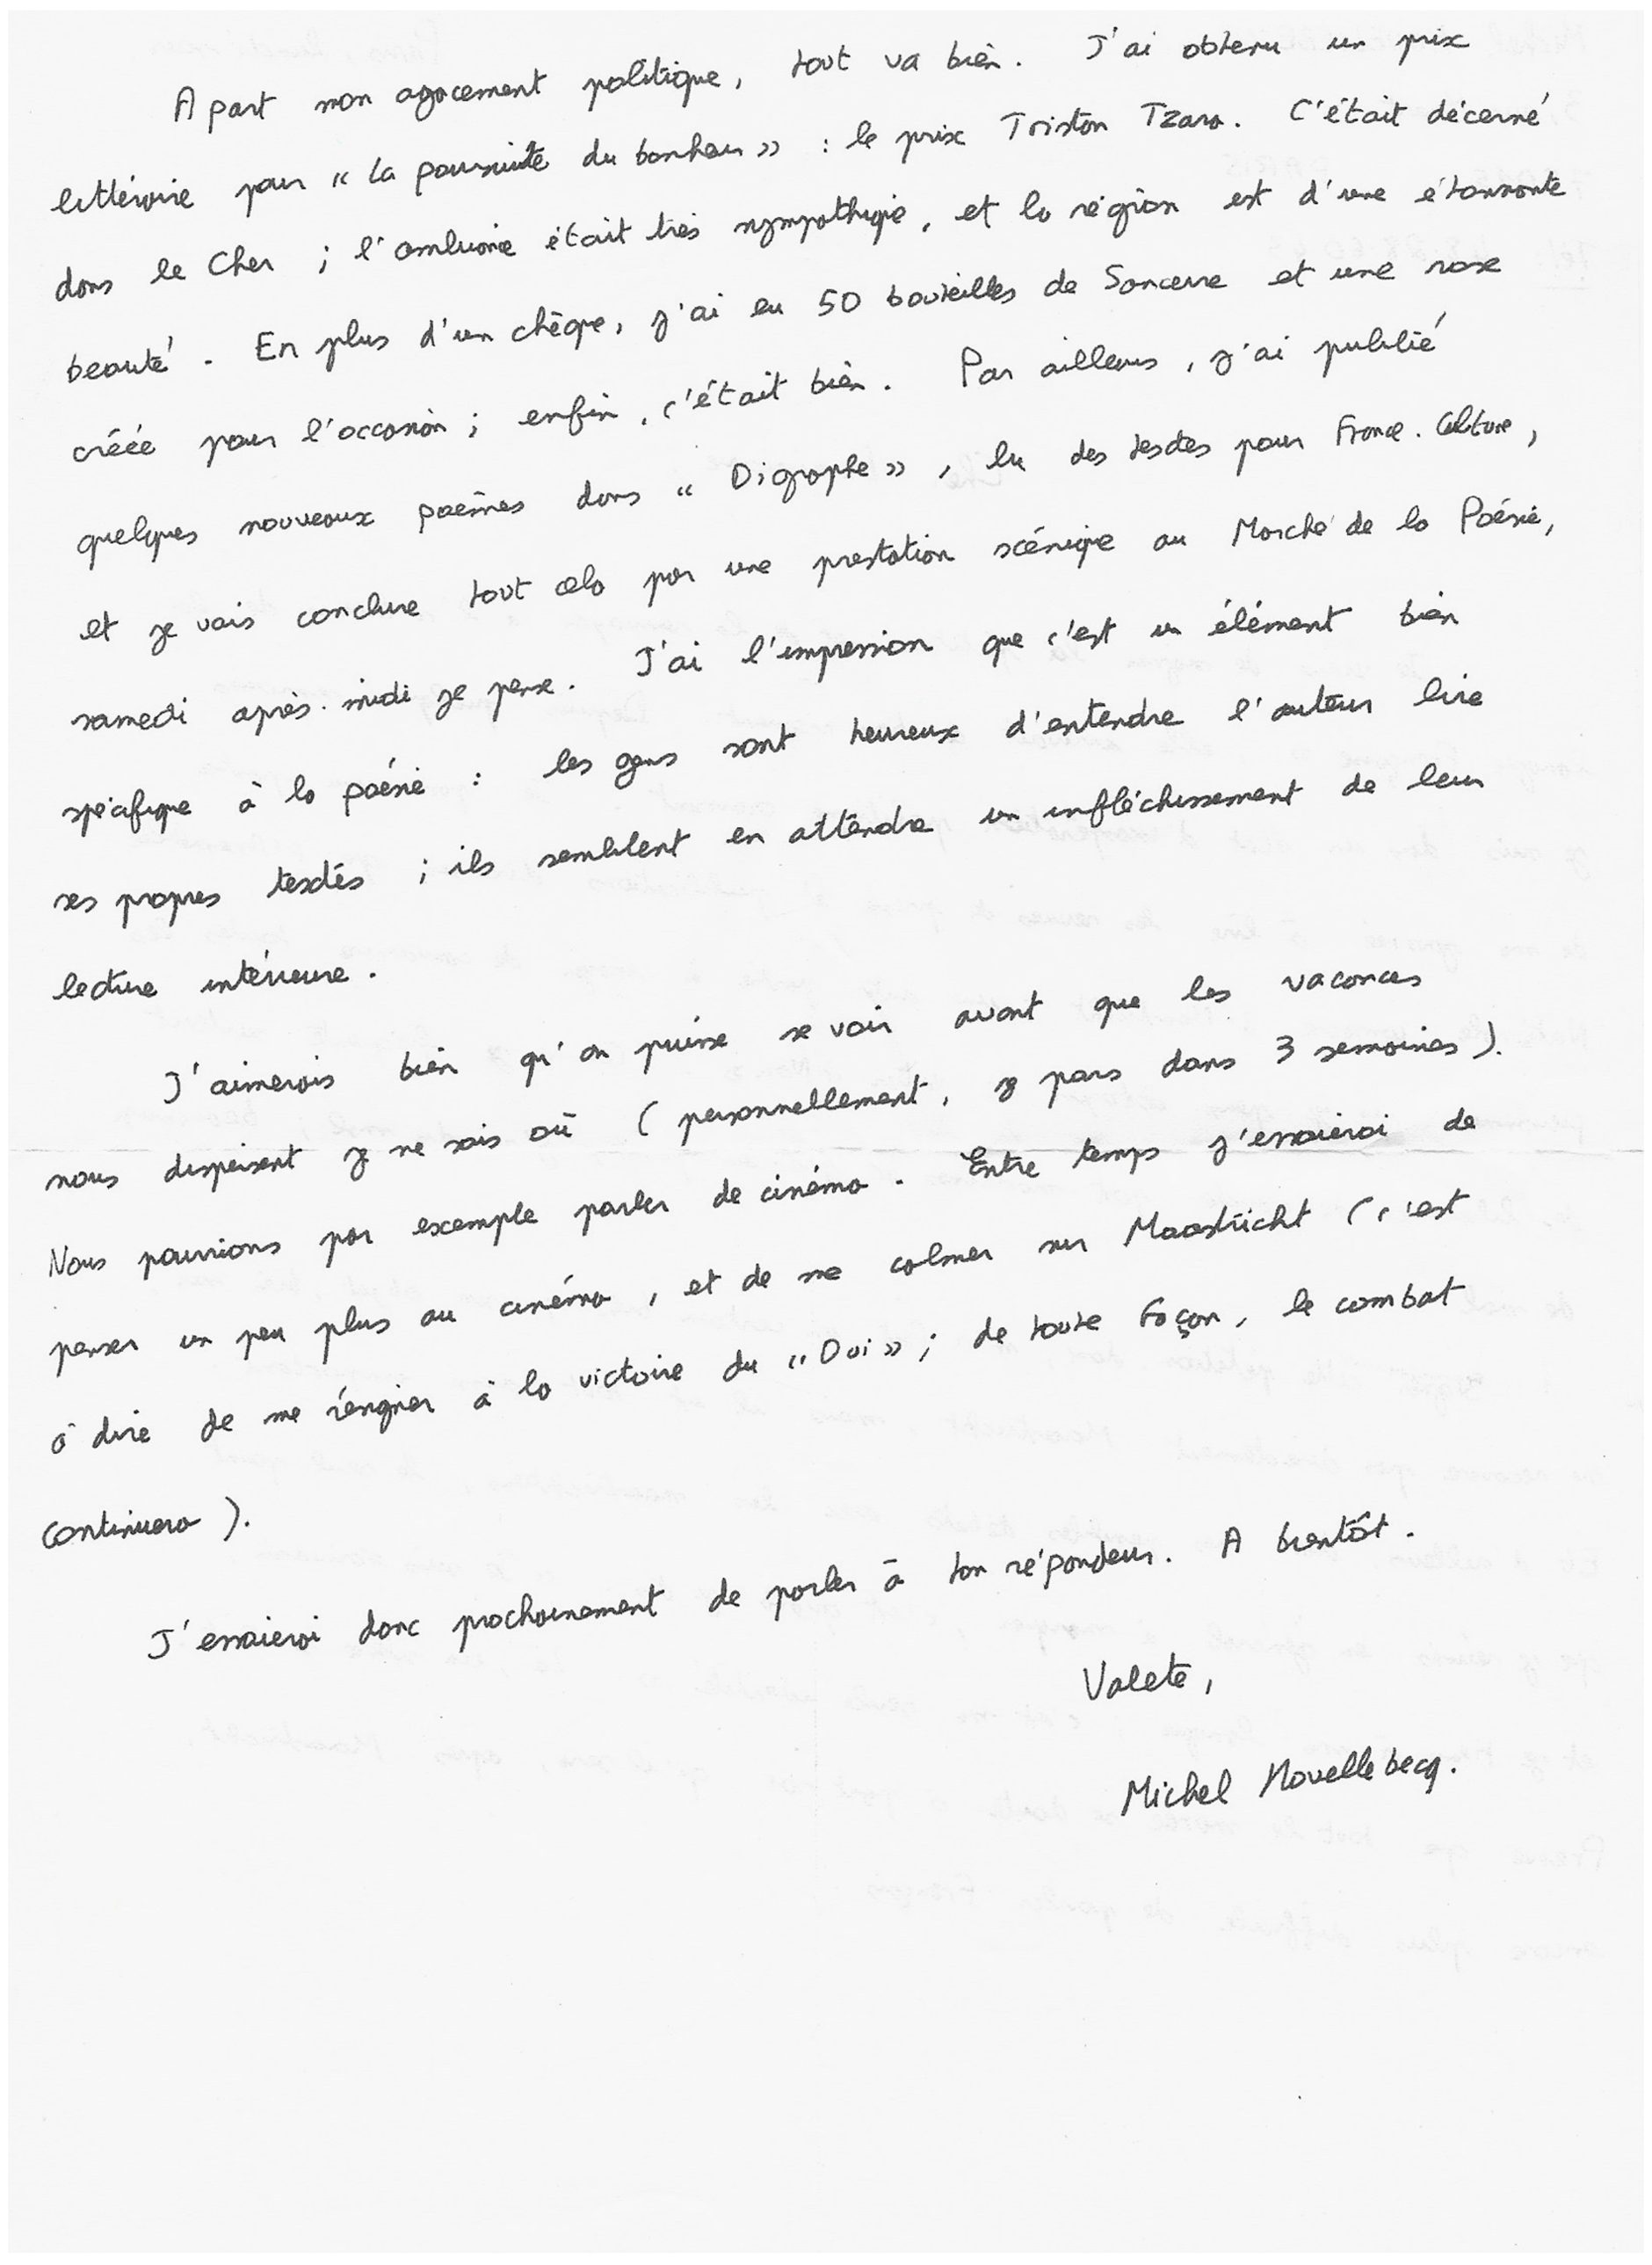 A part mon agacement politique, tout va bien. J'ai obtenu un prix
littéraire pour « La poursuite du bonheur » : le prix Tristan Tzara. C'était décerné
dans le Cher ; l'ambiance était très sympathique, et la région est d'une étonnante
beauté. En plus d'un chèque, j'ai eu 50 bouteilles de Sancerre et une rose
créée pour l'occasion ; enfin, c'était bien. Par ailleurs, j'ai publié
quelques nouveaux poèmes dans « Digraphe », lu des textes pour France-Culture,
et je vais conclure tout cela par une prestation scénique au Marché de la Poésie,
samedi après-midi je pense. J'ai l'impression que c'est un élément bien
spécifique à la poésie : les gens sont heureux d'entendre l'auteur lire
ses propres textes ; ils semblent en attendre un infléchissement de leur
lecture intérieure.
J'aimerais bien qu'on puisse se voir avant que les vacances
nous dispersent je ne sais où (personnellement, je pars dans 3 semaines).
Nous pourrions par exemple parler de cinéma. Entre temps j'essaierai de
penser un peu plus au cinéma, et de me calmer sur Maastricht (c'est
à dire de me résigner à la victoire du « Oui » ; de toute façon, le combat
continuera).
J'essaierai donc prochainement de parler à ton répondeur. A bientôt.
Valete,
Michel Houellebecq.